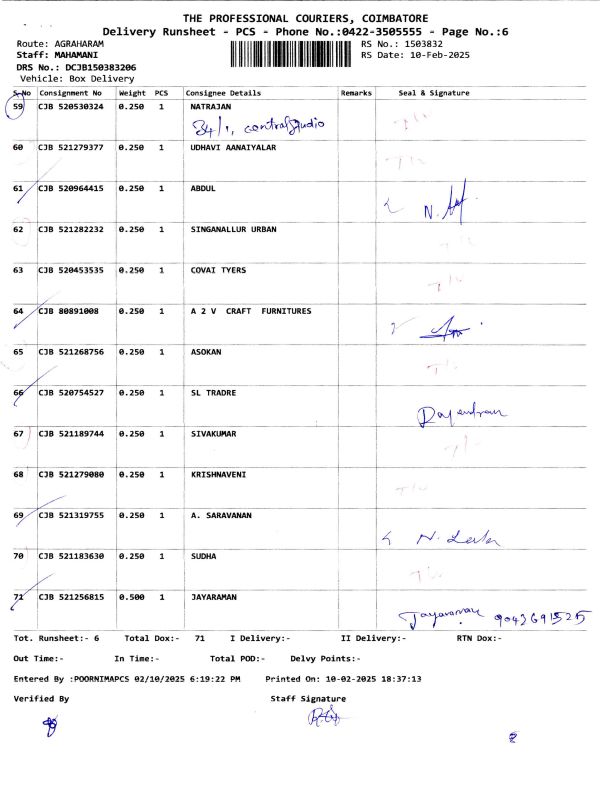 THE PROFESSIONAL COURIERS, COIMBATORE
Delivery Runsheet - PCS - Phone No.:0422-3505555 - Page No.:6
Route: AGRAHARAM RS No.: 1503832
Staff: MAHAMANI RS Date: 10-Feb-2025
DRS No.: DCJB150383206
Vehicle: Box Delivery
S.No Consignment No Weight PCS Consignee Details Remarks Seal & Signature
59 CJB 520530324 0.250 1 NATRAJAN
34/1, central studio
60 CJB 521279377 0.250 1 UDHAVI AANAIYALAR
61 CJB 520964415 0.250 1 ABDUL
62 CJB 521282232 0.250 1 SINGANALLUR URBAN
63 CJB 520453535 0.250 1 COVAI TYERS
64 CJB 80891008 0.250 1 A 2 V CRAFT FURNITURES
65 CJB 521268756 0.250 1 ASOKAN
66 CJB 520754527 0.250 1 SL TRADRE
67 CJB 521189744 0.250 1 SIVAKUMAR
68 CJB 521279080 0.250 1 KRISHNAVENI
69 CJB 521319755 0.250 1 A. SARAVANAN
70 CJB 521183630 0.250 1 SUDHA
71 CJB 521256815 0.500 1 JAYARAMAN
Jayaraman 9042691525
Tot. Runsheet:- 6 Total Dox:- 71 I Delivery:- II Delivery:- RTN Dox:-
Out Time:- In Time:- Total POD:- Delvy Points:-
Entered By :POORNIMAPCS 02/10/2025 6:19:22 PM Printed On: 10-02-2025 18:37:13
Verified By Staff Signature